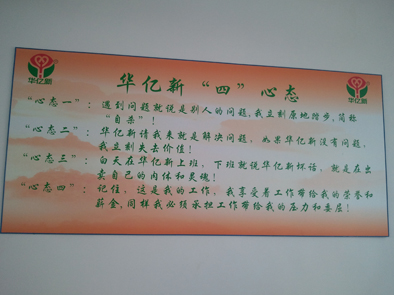 华亿新
华亿新
华亿新“四”心态
“心态一”：遇到问题就说是别人的问题，我立刻原地踏步，简称
“自杀”！
“心态二”：华亿新请我来就是解决问题。如果华亿新没有问题，
我立刻失去价值！
“心态三”：白天在华亿新上班，下班就说华亿新坏话，就是在出
卖自己的肉体和灵魂！
“心态四”：记住，这是我的工作，我享受着工作带给我的荣誉和
薪金，同样我必须承担工作带给我的压力和委屈！